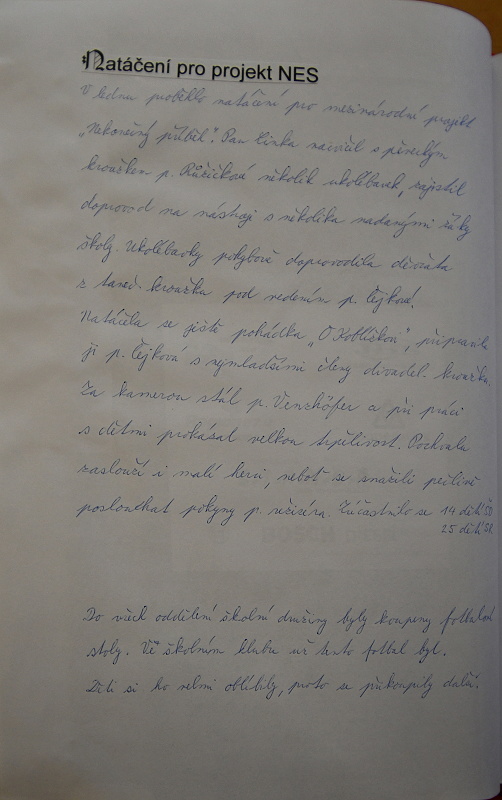 Natáčení pro projekt NES
V lednu proběhlo natáčení pro mezinárodní projekt
„Nekonečný příběh“. Pan Linka nacvičil s pěveckým
kroužkem p. Růžičkové několik ukolébavek, zajistil
doprovod na nástroji s několika nadanými žáky
školy. Ukolébavky pohybově doprovodila děvčata
z taneč. kroužku pod vedením p. Čejkové.
Natáčela se ještě pohádka „O Koblížkovi“, připravila
ji p. Čejková s nejmladšími členy divadel. kroužku.
Za kamerou stál p. Venzhöfer a při práci
s dětmi prokázal velkou trpělivost. Pochvalu
zaslouží i malí herci, neboť se snažili pečlivě
poslouchat pokyny p. režiséra. Zúčastnilo se 14 dětí ŠD
25 dětí ŠK
Do všech oddělení školní družiny byly koupeny fotbalové
stoly. Ve školním klubu už tento fotbal byl.
Děti si ho velmi oblíbily, proto se přikoupily další.